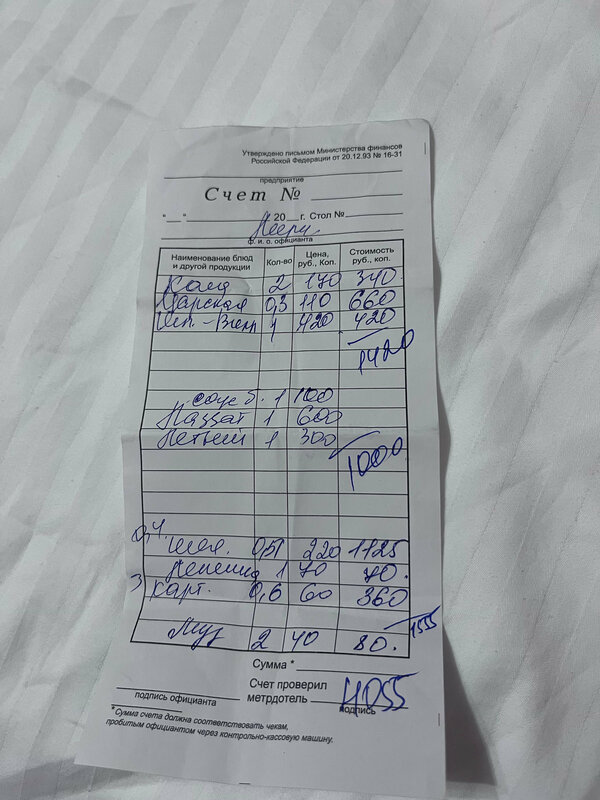 Утверждено письмом Министерства финансов
Российской Федерации от 20.12.93 № 16-31
предприятие
Счет №
"__" 20__ г. Стол №
ф. и. о. официанта
Наименование блюд и другой продукции Кол-во Цена, руб., Коп. Стоимость руб., коп.
Кола 2 170 340
Царская 0,3 110 660
1 420 420
1420
соус б. 1 100
Наззат 1 600
Летний 1 300
1000
0,4.
шея. 0,51 220 1125
Лепешка 1 70 70.
3 карт. 0,6 60 360
1555
Муз 2 40 80.
Сумма *
Счет проверил
метрдотель 4055
подпись официанта подпись
* Сумма счета должна соответствовать чекам,
пробитым официантом через контрольно-кассовую машину.